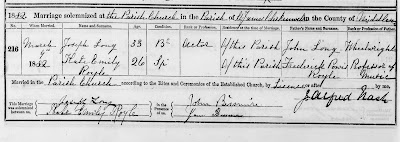 1882. Marriage solemnized at the Parish Church in the Parish of St James Clerkenwell in the County of Middlesex
Name and Surname. Age. Condition. Rank or Profession. Residence at the time of Marriage. Father's Name and Surname. Rank or Profession of Father.
216 March 1882 Joseph Long 33 Actor Of this Parish John Long Wheelwright
Kate Emily Royle 26 Sp Of this Parish Frederick Royle Professor of Music
Married in the Parish Church according to the Rites and Ceremonies of the Established Church, by Licence or after by me,
This Marriage was solemnized between us, Joseph Long Kate Emily Royle in the Presence of us, John J Alfred Nash